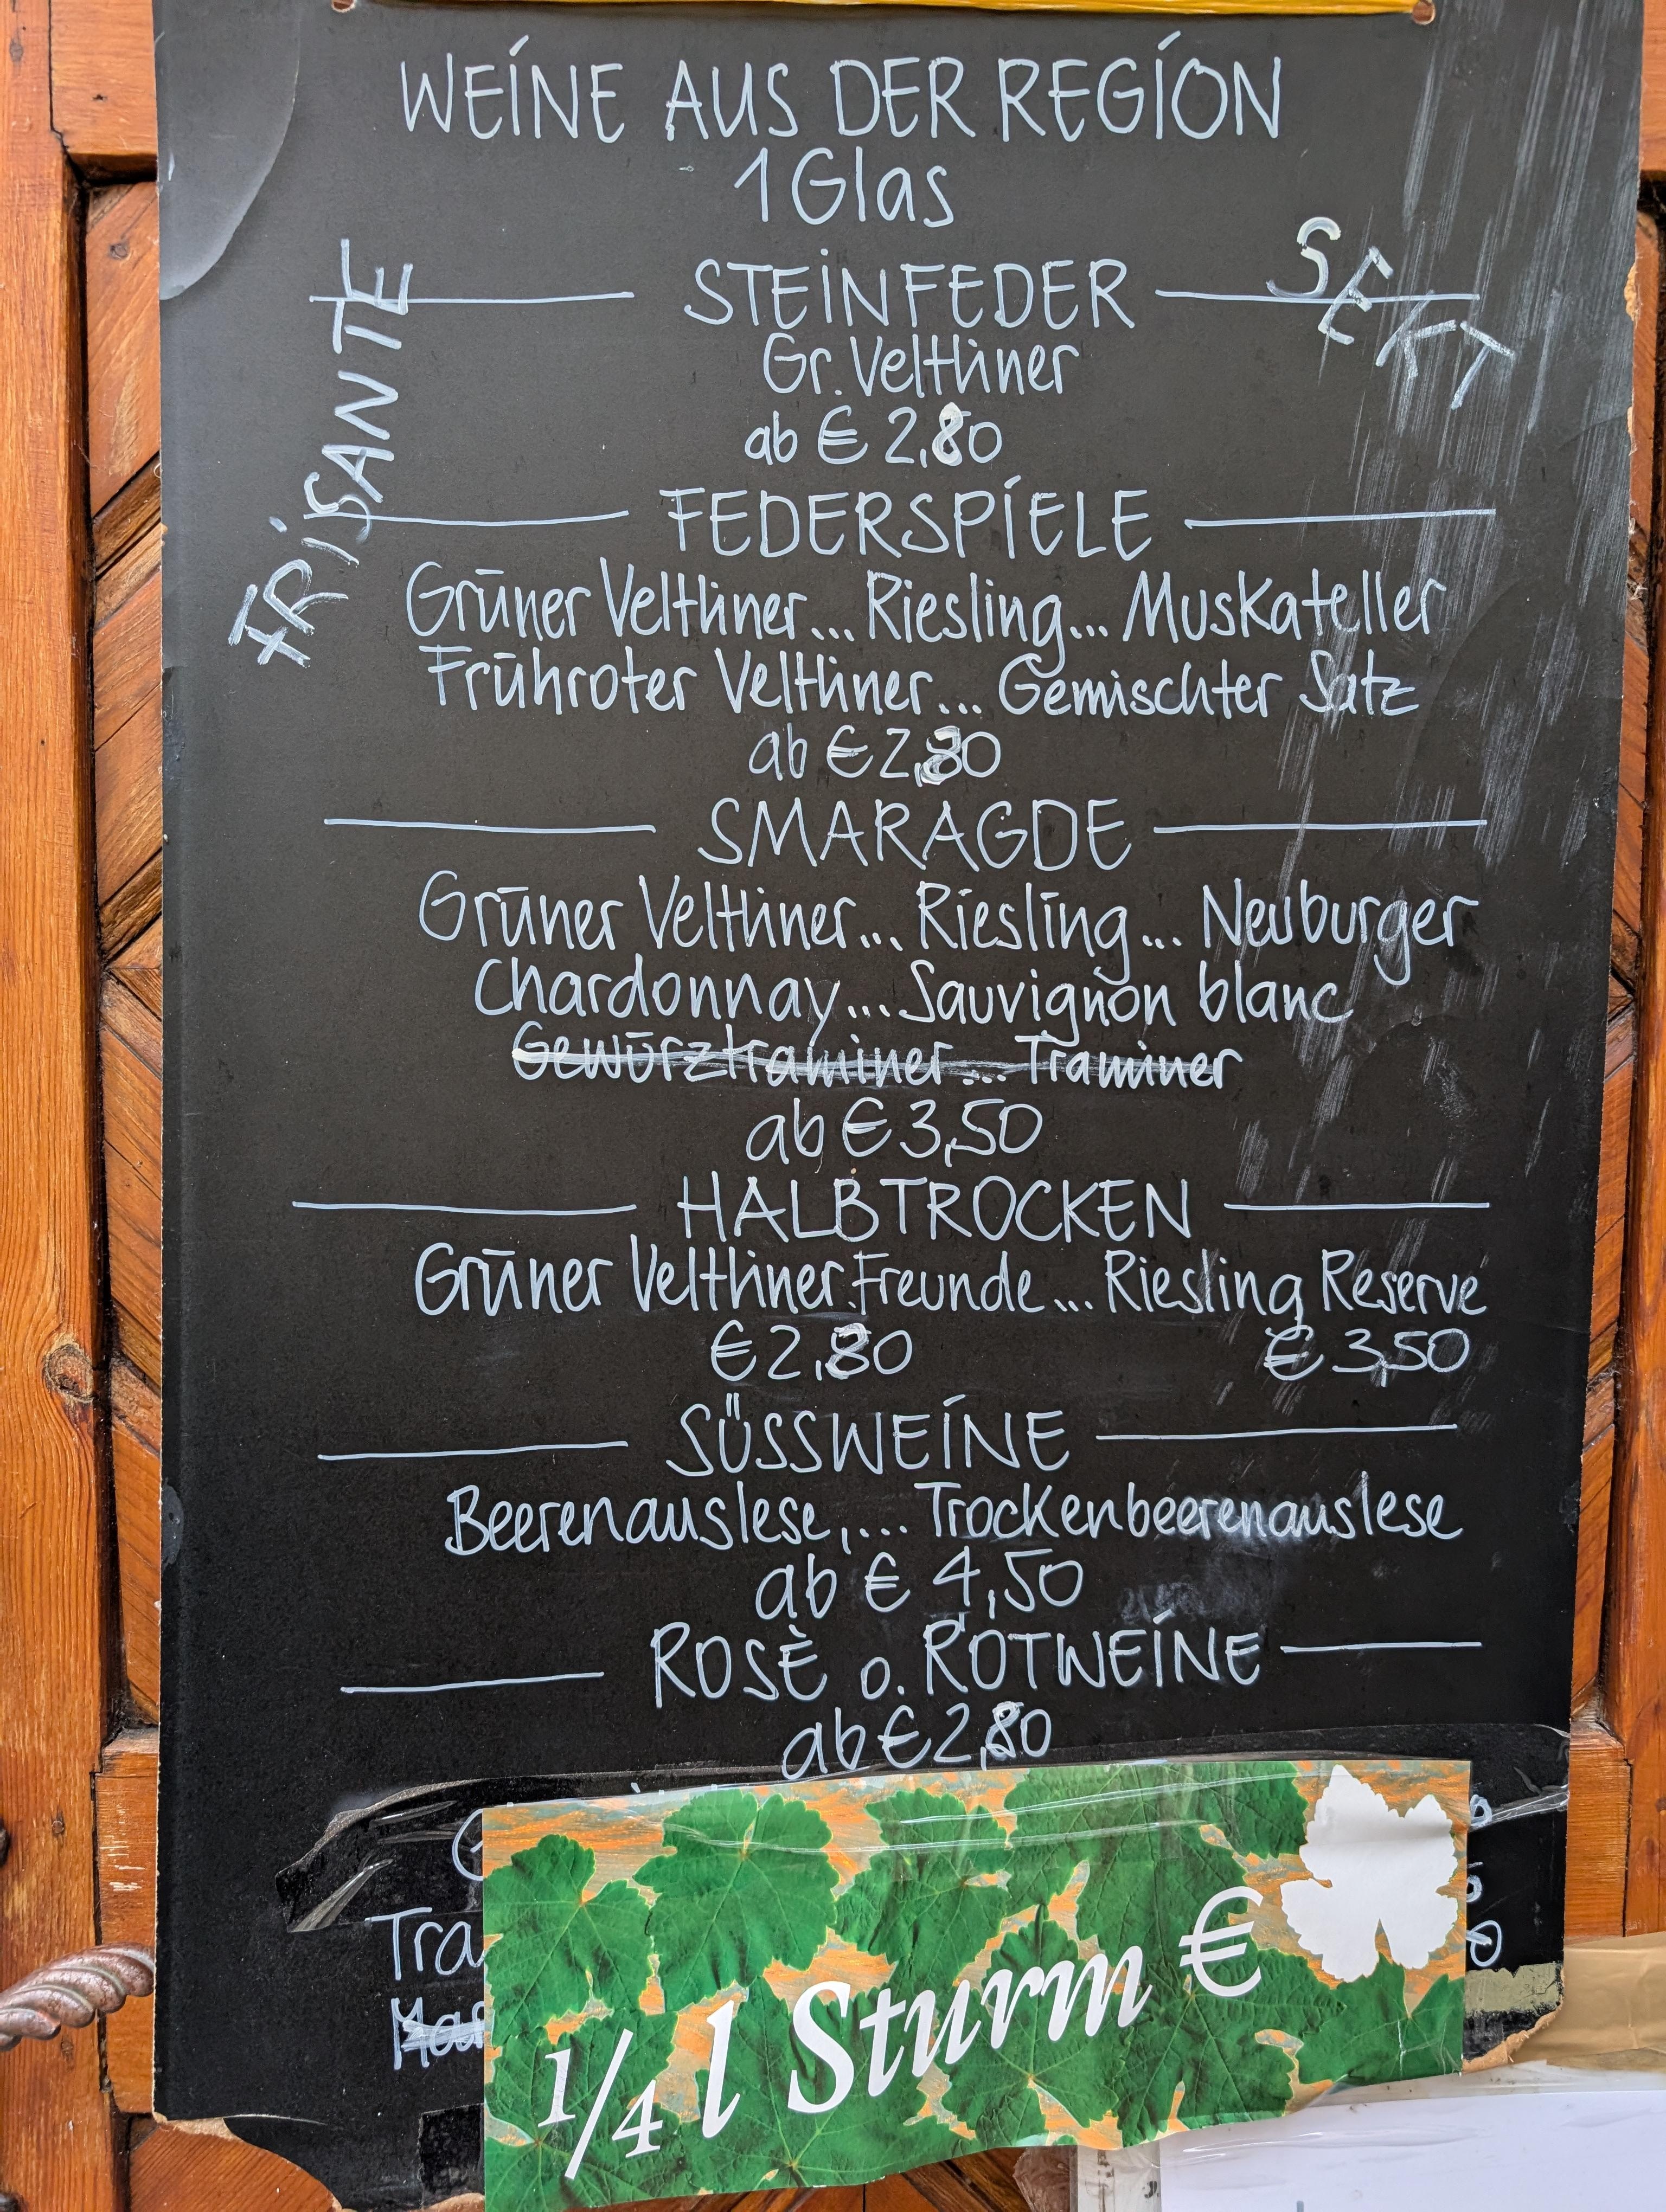 WEINE AUS DER REGION
1 Glas
FRISANTE
SEKT
STEINFEDER
Gr. Veltliner
ab € 2,80
FEDERSPIELE
Grüner Veltliner... Riesling... Muskateller
Frühroter Veltliner... Gemischter Satz
ab € 2,80
SMARAGDE
Grüner Veltliner... Riesling... Neuburger
Chardonnay... Sauvignon blanc
Gewürztraminer... Traminer
ab € 3,50
HALBTROCKEN
Grüner Veltliner Freunde... Riesling Reserve
€ 2,80 € 3,50
SÜSSWEINE
Beerenauslese,... Trockenbeerenauslese
ab € 4,50
ROSÈ o. ROTWEINE
ab € 2,80
Tra
1/4 l Sturm €